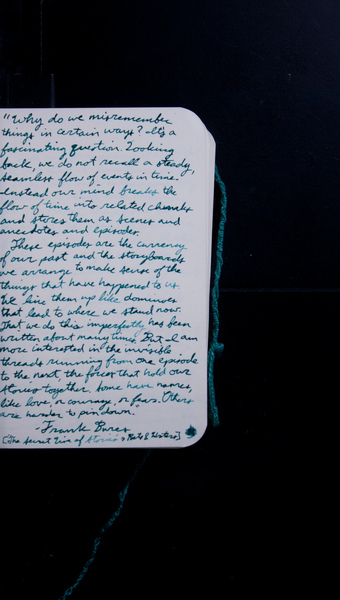 "Why do we misremember
things in certain ways? It's a
fascinating question. Looking
back, we do not recall a steady,
seamless flow of events in time.
Instead our mind breaks the
flow of time into related chunks
and stores them as scenes and
anecdotes and episodes.
These episodes are the currency
of our past and the storyboards
we arrange to make sense of the
things that have happened to us.
We line them up like dominoes
that lead to where we stand now.
That we do this imperfectly has been
written about many times. But I am
more interested in the invisible
threads running from one episode
to the next, the forces that hold our
stories together. Some have names,
like love, or courage, or fear. Others
are harder to pin down."
-Frank Bures
[The Secret Lives of Stories